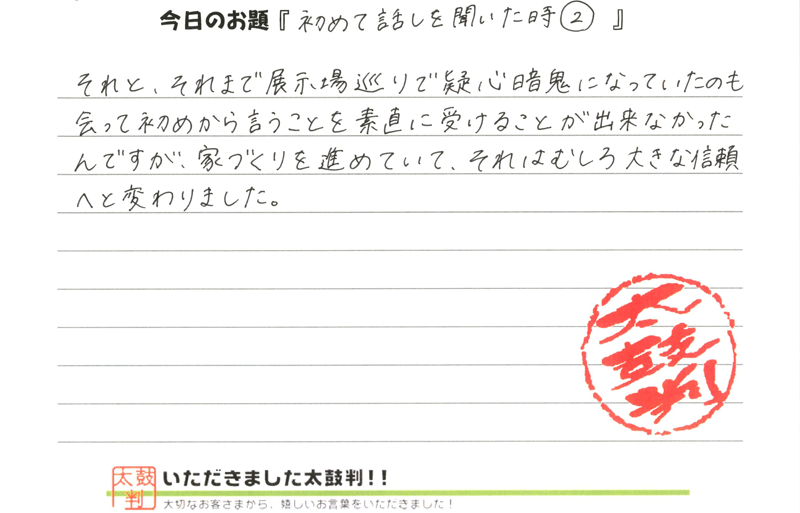 今日のお題『初めて話しを聞いた時② 』
それと、それまで展示場巡りで疑心暗鬼になっていたのも
会って初めから言うことを素直に受けることが出来なかった
んですが、家づくりを進めていて、それはむしろ大きな信頼
へと変わりました。
太鼓判
太鼓判
いただきました太鼓判!!
大切なお客さまから、嬉しいお言葉をいただきました!